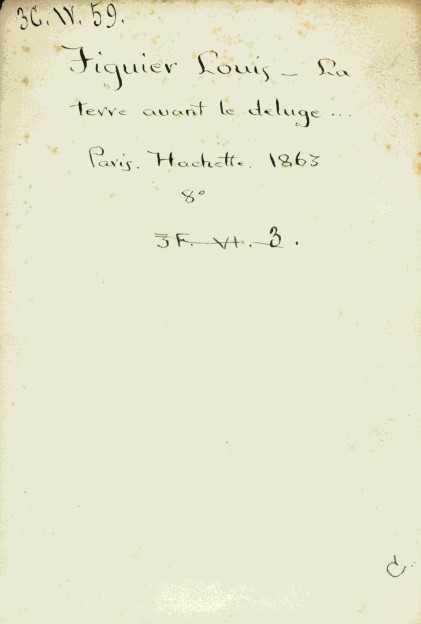 3C. IV. 59.
Figuier Louis – La
terre avant le deluge ...
Paris. Hachette. 1863
8°
3F. VI. 3.